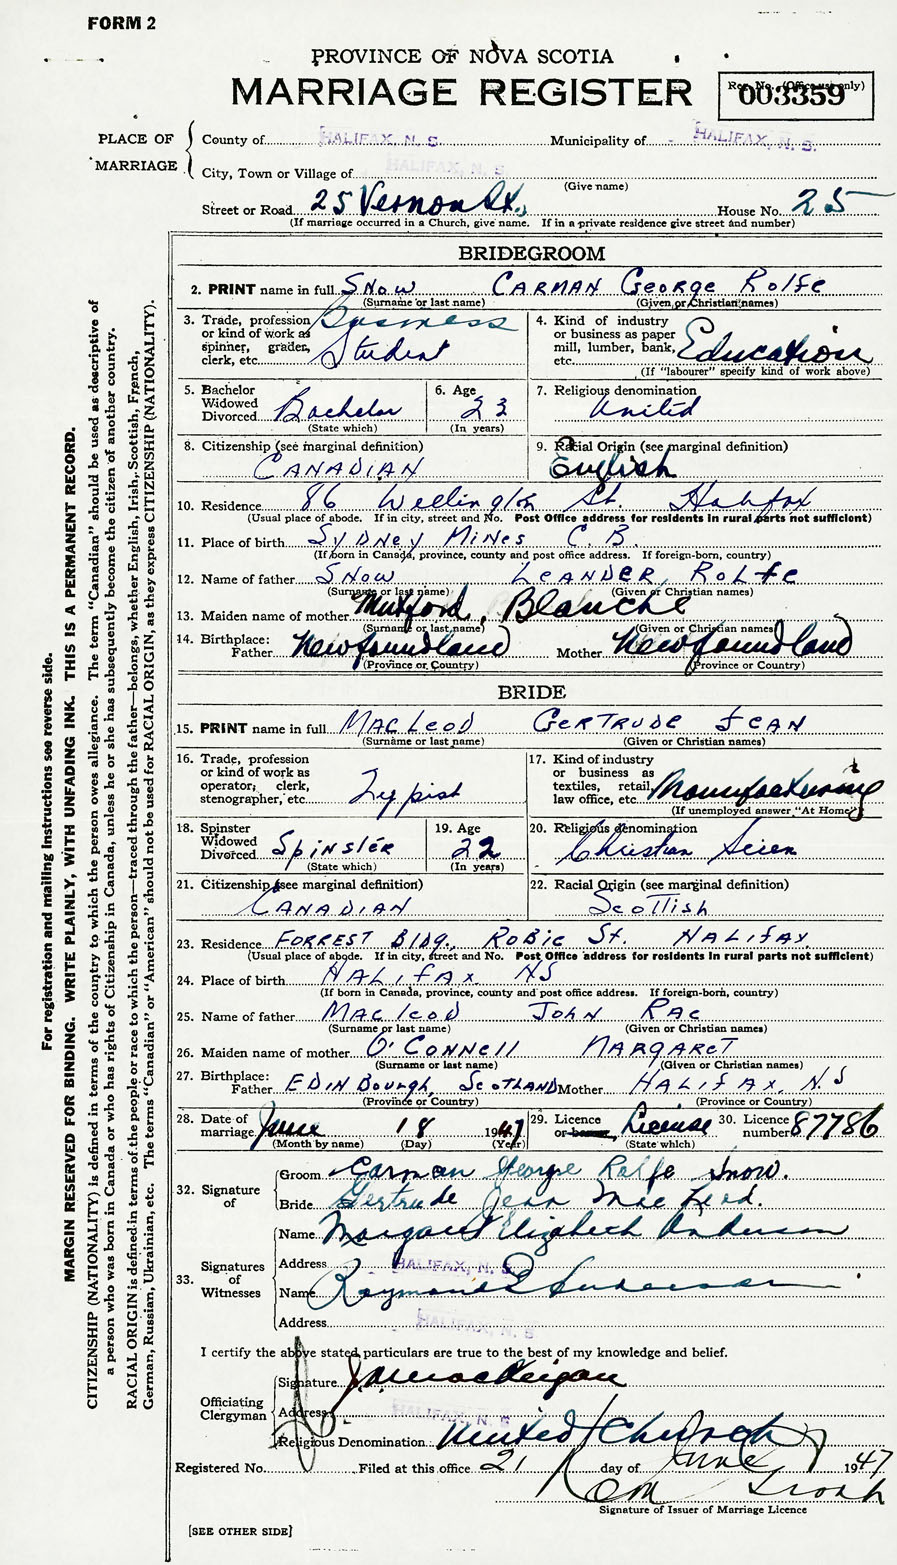 FORM 2
PROVINCE OF NOVA SCOTIA
MARRIAGE REGISTER
Reg. No. (Office use only)
003359
PLACE OF MARRIAGE
County of HALIFAX, N. S. Municipality of HALIFAX, N. S.
City, Town or Village of HALIFAX, N. S.
(Give name)
Street or Road 25 Vernon St., House No. 25
(If marriage occurred in a Church, give name. If in a private residence give street and number)
BRIDEGROOM
2. PRINT name in full Snow CARMAN George Rolfe
(Surname or last name) (Given or Christian names)
3. Trade, profession or kind of work as spinner, grader, clerk, etc. Business Student
4. Kind of industry or business as paper mill, lumber, bank, etc. Education
(If "labourer" specify kind of work above)
5. Bachelor Widowed Divorced Bachelor
(State which)
6. Age 23
(In years)
7. Religious denomination United
8. Citizenship (see marginal definition) CANADIAN
9. Racial Origin (see marginal definition) English
10. Residence 86 Wellington St. Halifax
(Usual place of abode. If in city, street and No. Post Office address for residents in rural parts not sufficient)
11. Place of birth SYDNEY MINES C. B.
(If born in Canada, province, county and post office address. If foreign-born, country)
12. Name of father SNOW LEANDER, ROLFE
(Surname or last name) (Given or Christian names)
13. Maiden name of mother Mutford, Blanche
(Surname or last name) (Given or Christian names)
14. Birthplace: Father Newfoundland Mother Newfoundland
(Province or Country) (Province or Country)
BRIDE
15. PRINT name in full MACLEOD GERTRUDE JEAN
(Surname or last name) (Given or Christian names)
16. Trade, profession or kind of work as operator, clerk, stenographer, etc. Typist
17. Kind of industry or business as textiles, retail, law office, etc. Manufacturing
(If unemployed answer "At Home")
18. Spinster Widowed Divorced Spinster
(State which)
19. Age 22
(In years)
20. Religious denomination Christian Scien
21. Citizenship (see marginal definition) CANADIAN
22. Racial Origin (see marginal definition) Scottish
23. Residence FORREST Bldg., ROBIE St. HALIFAX
(Usual place of abode. If in city, street and No. Post Office address for residents in rural parts not sufficient)
24. Place of birth HALIFAX NS
(If born in Canada, province, county and post office address. If foreign-born, country)
25. Name of father MACLEOD JOHN RAE
(Surname or last name) (Given or Christian names)
26. Maiden name of mother O'CONNELL MARGARET
(Surname or last name) (Given or Christian names)
27. Birthplace: Father EDINBOURGH, SCOTLAND Mother HALIFAX, N.S
(Province or Country) (Province or Country)
28. Date of marriage June 18 1947
(Month by name) (Day) (Year)
29. Licence or banns License
(State which)
30. Licence number 87786
32. Signature of
Groom Carman George Rolfe Snow.
Bride Gertrude Jean MacLeod.
33. Signatures of Witnesses
Name Margaret Elizabeth Anderson
Address HALIFAX, N. S.
Name Raymond E Anderson
Address HALIFAX, N. S
I certify the above stated particulars are true to the best of my knowledge and belief.
Officiating Clergyman
Signature
Address HALIFAX, N. S
Religious Denomination United Church
Registered No. Filed at this office 21 day of June 1947
Signature of Issuer of Marriage Licence
[SEE OTHER SIDE]
For registration and mailing instructions see reverse side.
MARGIN RESERVED FOR BINDING. WRITE PLAINLY, WITH UNFADING INK. THIS IS A PERMANENT RECORD.
CITIZENSHIP (NATIONALITY) is defined in terms of the country to which the person owes allegiance. The term "Canadian" should be used as descriptive of
a person who was born in Canada or who has rights of Citizenship in Canada, unless he or she has subsequently become the citizen of another country.
RACIAL ORIGIN is defined in terms of the people or race to which the person—traced through the father—belongs, whether English, Irish, Scottish, French,
German, Russian, Ukrainian, etc. The terms "Canadian" or "American" should not be used for RACIAL ORIGIN, as they express CITIZENSHIP (NATIONALITY).